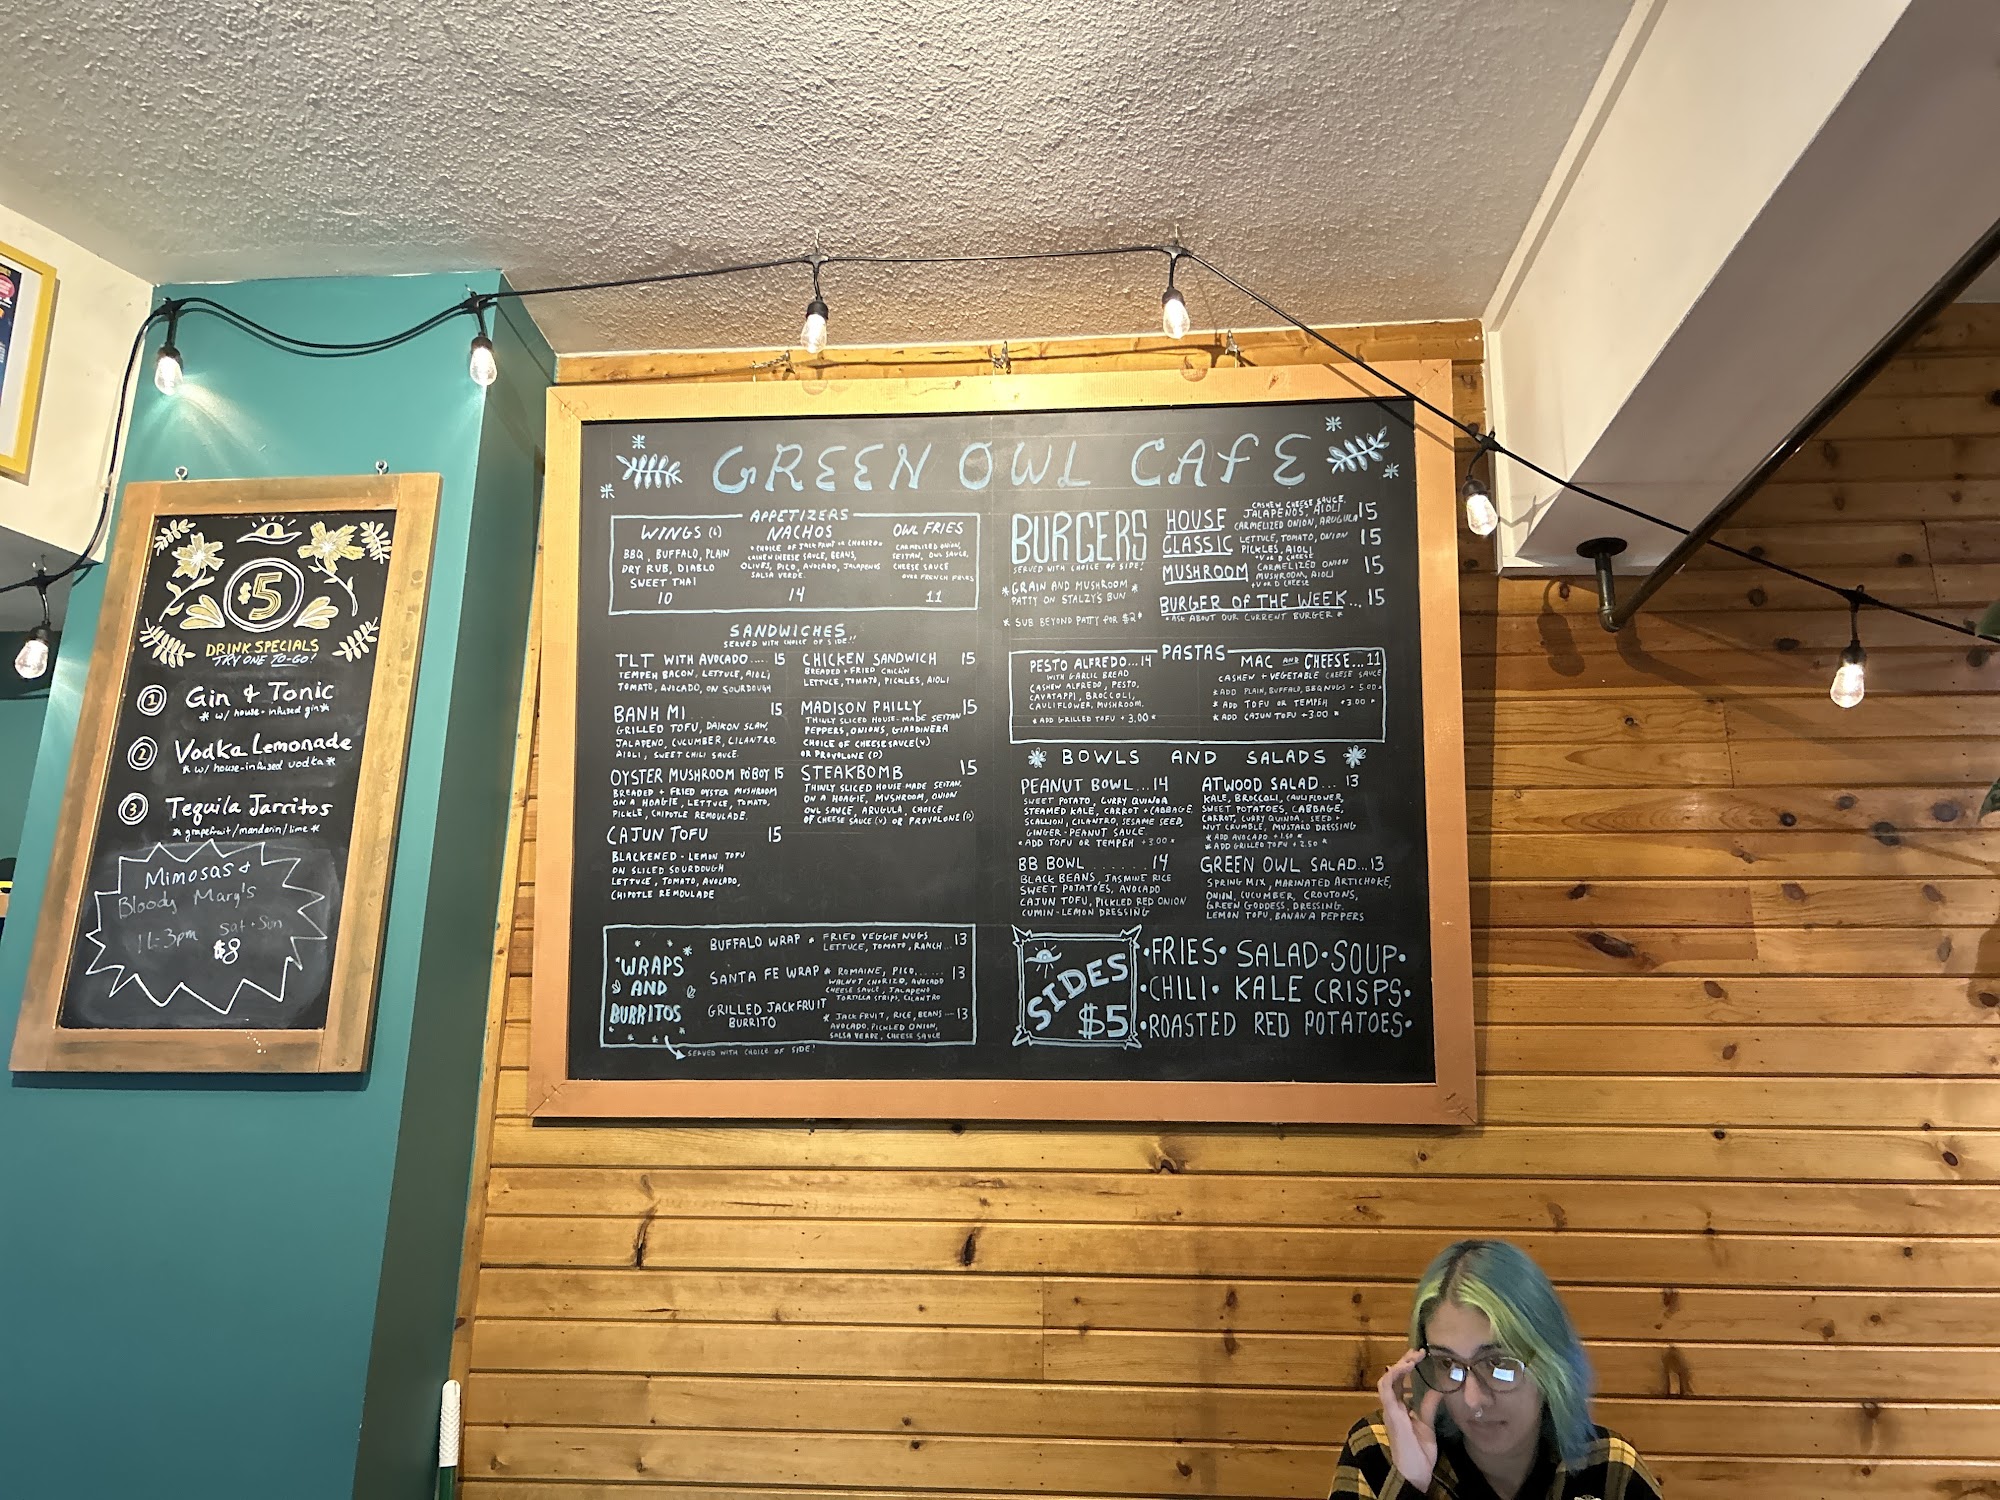 $5
DRINK SPECIALS
TRY ONE TO-GO!
1 Gin & Tonic
* w/ house-infused gin *
2 Vodka Lemonade
* w/ house-infused vodka *
3 Tequila Jarritos
* grapefruit/mandarin/lime *
Mimosas &
Bloody Mary's
11-3pm Sat + Sun
$8
GREEN OWL CAFE
APPETIZERS
WINGS (6)
BBQ, BUFFALO, PLAIN
DRY RUB, DIABLO
SWEET THAI
10
NACHOS
* CHOICE OF JACKFRUIT OR CHORIZO *
CASHEW CHEESE SAUCE, BEANS,
OLIVES, PICO, AVOCADO, JALAPENOS
SALSA VERDE.
14
OWL FRIES
CARMELIZED ONION,
SEITAN, OWL SAUCE,
CHEESE SAUCE
OVER FRENCH FRIES
11
SANDWICHES
SERVED WITH CHOICE OF SIDE!!
TLT WITH AVOCADO.... 15
TEMPEH BACON, LETTUCE, AIOLI
TOMATO, AVOCADO, ON SOURDOUGH
BANH MI 15
GRILLED TOFU, DAIKON SLAW,
JALAPENO, CUCUMBER, CILANTRO,
AIOLI, SWEET CHILI SAUCE.
OYSTER MUSHROOM PO'BOY 15
BREADED + FRIED OYSTER MUSHROOM
ON A HOAGIE, LETTUCE, TOMATO,
PICKLE, CHIPOTLE REMOULADE.
CAJUN TOFU 15
BLACKENED - LEMON TOFU
ON SLICED SOURDOUGH
LETTUCE, TOMATO, AVOLADO,
CHIPOTLE REMOULADE
CHICKEN SANDWICH 15
BREADED + FRIED CHICK'N
LETTUCE, TOMATO, PICKLES, AIOLI
MADISON PHILLY 15
THINLY SLICED HOUSE-MADE SEITAN
PEPPERS, ONIONS, GIARDINERA
CHOICE OF CHEESE SAUCE (V)
OR PROVOLONE (D)
STEAKBOMB 15
THINLY SLICED HOUSE MADE SEITAN.
ON A HOAGIE, MUSHROOM, ONION
OWL SAUCE, ARUGULA CHOICE
OF CHEESE SAUCE (V) OR PROVOLONE (D)
WRAPS
AND
BURRITOS
BUFFALO WRAP * FRIED VEGGIE NUGS
LETTUCE, TOMATO, RANCH... 13
SANTA FE WRAP * ROMAINE, PICO,...... 13
WALNUT CHORIZO, AVOCADO
CHEESE SAUCE, JALAPENO
TORTILLA STRIPS, CILANTRO
GRILLED JACKFRUIT
BURRITO
* JACKFRUIT, RICE, BEANS — 13
AVOCADO, PICKLED ONION,
SALSA VERDE, CHEESE SAUCE
SERVED WITH CHOICE OF SIDE!
BURGERS
SERVED WITH CHOICE OF SIDE!
* GRAIN AND MUSHROOM *
PATTY ON STALZY'S BUN
* SUB BEYOND PATTY FOR $2 *
HOUSE CASHEW CHEESE SAUCE, 15
JALAPENOS, AIOLI
CARMELIZED ONION, ARUGULA
CLASSIC LETTUCE, TOMATO, ONION 15
PICKLES, AIOLI
+V OR D CHEESE
MUSHROOM CARMELIZED ONION 15
MUSHROOM, AIOLI
+V OR D CHEESE
BURGER OF THE WEEK... 15
* ASK ABOUT OUR CURRENT BURGER *
PASTAS
PESTO ALFREDO... 14
WITH GARLIC BREAD
CASHEW ALFREDO, PESTO,
CAVATAPPI, BROCCOLI,
CAULIFLOWER, MUSHROOM.
* ADD GRILLED TOFU + 3.00 *
MAC AND CHEESE... 11
CASHEW + VEGETABLE CHEESE SAUCE
* ADD PLAIN, BUFFALO, BBQ NUGS + 5.00 *
* ADD TOFU OR TEMPEH + 3.00 *
* ADD CAJUN TOFU + 3.00 *
BOWLS AND SALADS
PEANUT BOWL... 14
SWEET POTATO, CURRY QUINOA
STEAMED KALE, CARROT + CABBAGE,
SCALLION, CILANTRO, SESAME SEED,
GINGER-PEANUT SAUCE.
* ADD TOFU OR TEMPEH + 3.00 *
BB BOWL ....... 14
BLACK BEANS, JASMINE RICE
SWEET POTATOES, AVOCADO
CAJUN TOFU, PICKLED RED ONION
CUMIN-LEMON DRESSING
ATWOOD SALAD.... 13
KALE, BROCCOLI, CAULIFLOWER,
SWEET POTATOES, CABBAGE,
CARROT, CURRY QUINOA, SEED +
NUT CRUMBLE, MUSTARD DRESSING
* ADD AVOCADO + 1.50 *
* ADD GRILLED TOFU + 2.50 *
GREEN OWL SALAD... 13
SPRING MIX, MARINATED ARTICHOKE,
ONION, CUCUMBER, CROUTONS,
GREEN GODDESS, DRESSING.
LEMON TOFU, BANANA PEPPERS
SIDES
$5
• FRIES • SALAD • SOUP •
• CHILI • KALE CRISPS •
• ROASTED RED POTATOES •